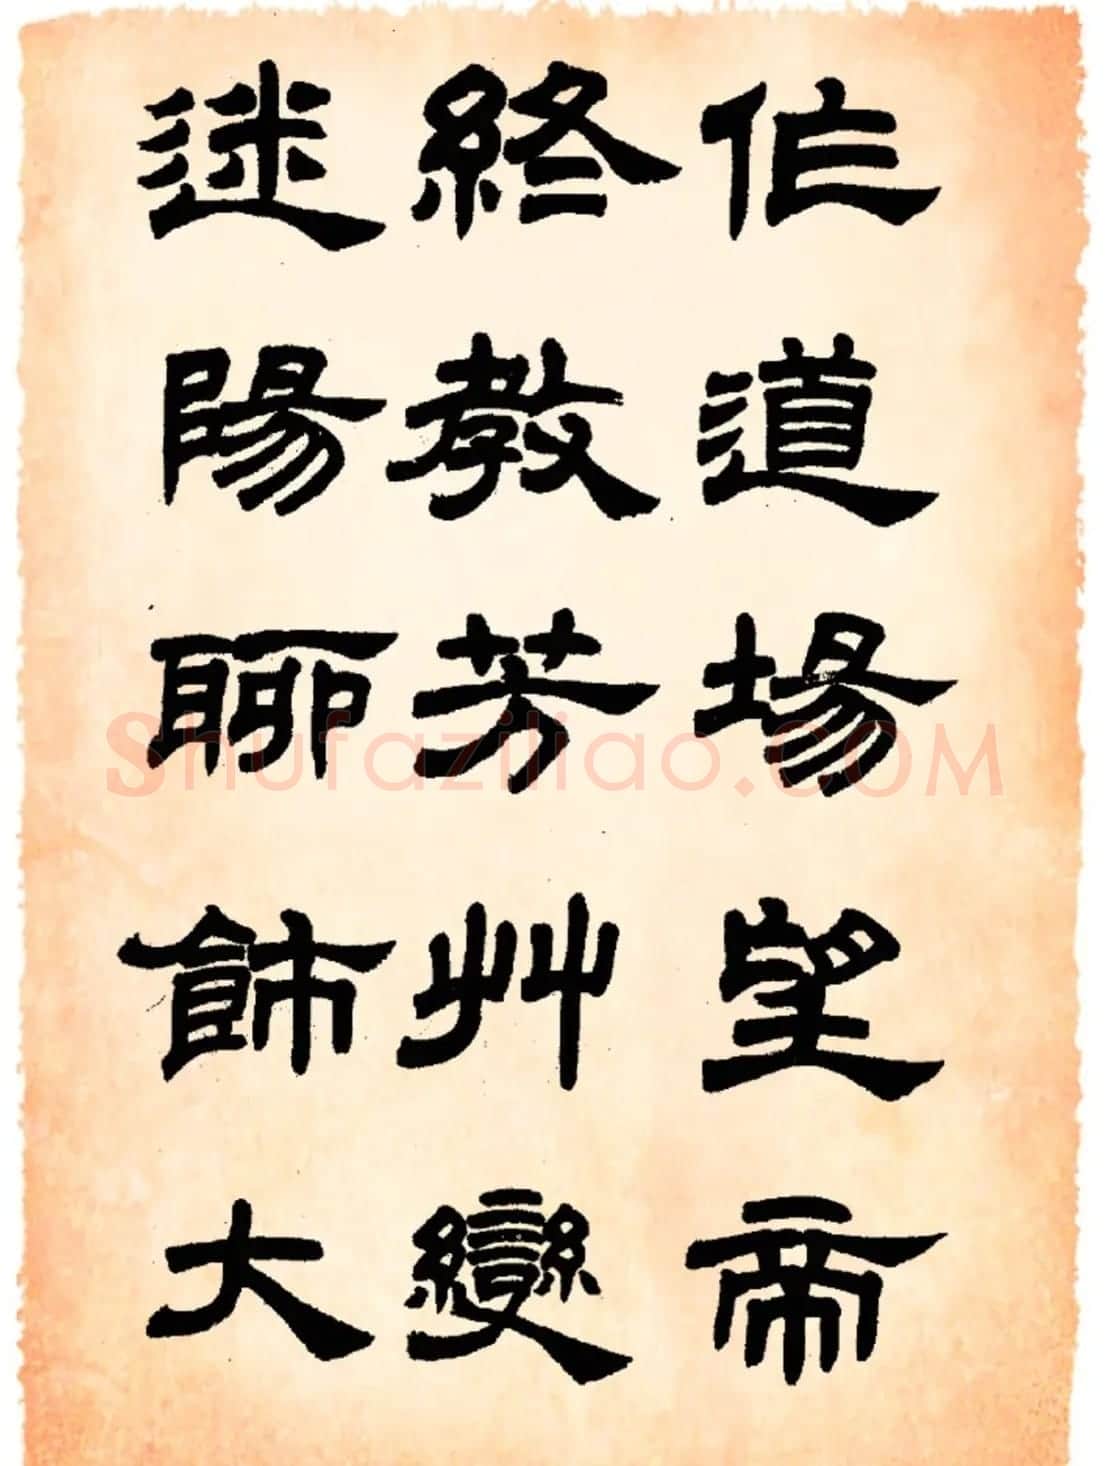 作道場望帝
終教芳艸變
迷陽聊飾大
Shufaziliao.COM